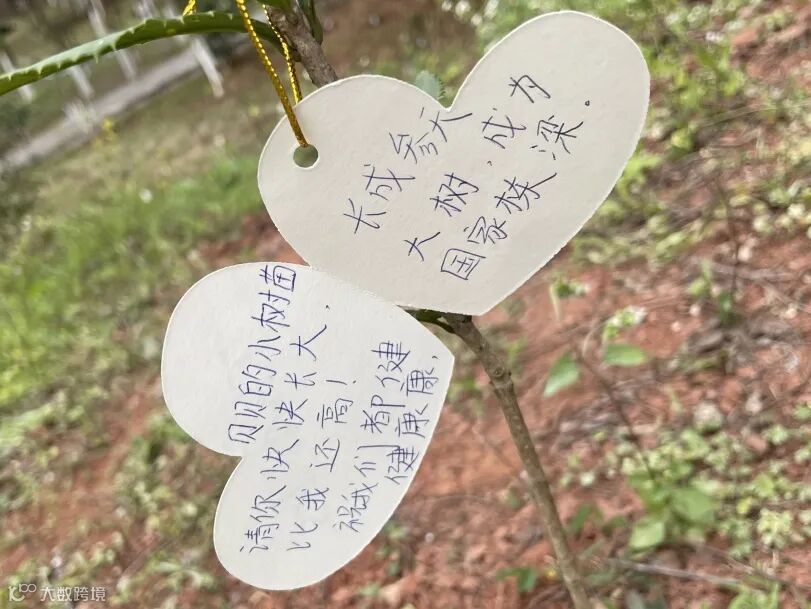 长成参天
大树,成为
国家栋梁。
贝贝的小树苗
请你快快长大,
比我还高!
祝我们都健
健康康,
大数跨境